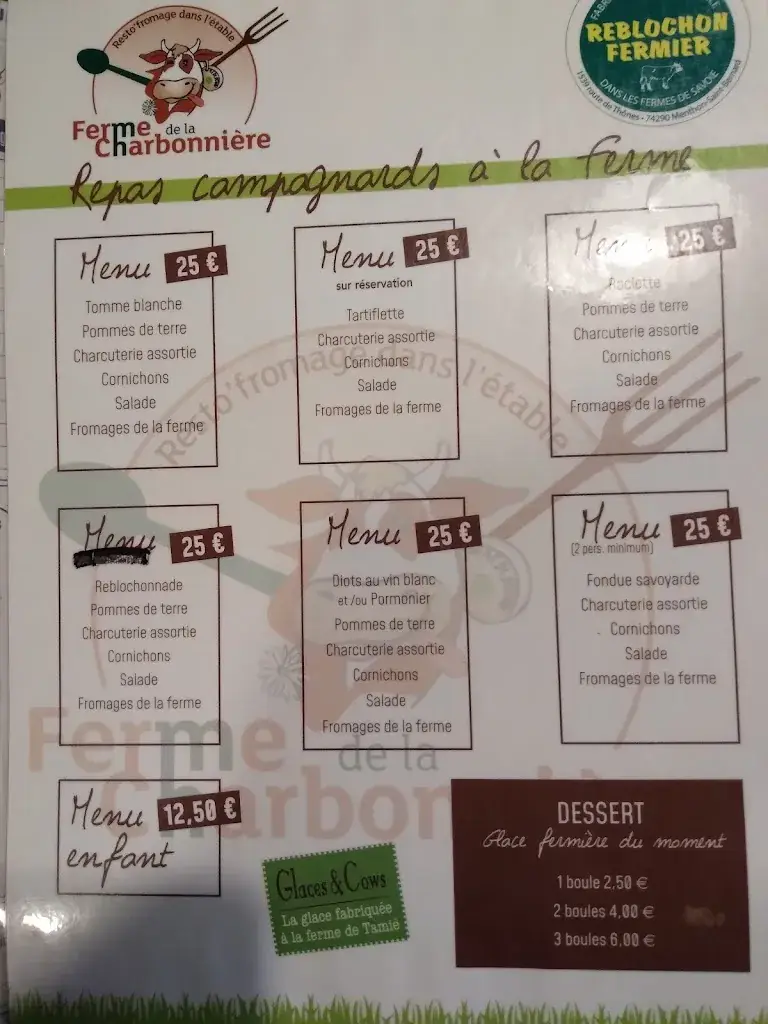 Resto'fromage dans l'étable
Ferme de la
Charbonnière
REBLOCHON
FERMIER
DANS LES FERMES DE SAVOIE
1539 route de Thônes - 74290 Menthon-Saint-Bernard
Repas campagnards à la ferme
Menu 25 €
Tomme blanche
Pommes de terre
Charcuterie assortie
Cornichons
Salade
Fromages de la ferme
Menu 25 €
sur réservation
Tartiflette
Charcuterie assortie
Cornichons
Salade
Fromages de la ferme
Menu 25 €
Raclette
Pommes de terre
Charcuterie assortie
Cornichons
Salade
Fromages de la ferme
Menu 25 €
Reblochonnade
Pommes de terre
Charcuterie assortie
Cornichons
Salade
Fromages de la ferme
Menu 25 €
Diots au vin blanc
et /ou Pormonier
Pommes de terre
Charcuterie assortie
Cornichons
Salade
Fromages de la ferme
Menu 25 €
(2 pers. minimum)
Fondue savoyarde
Charcuterie assortie
Cornichons
Salade
Fromages de la ferme
Resto'fromage dans l'étable
Ferme de la
Charbonnière
Menu 12,50 €
enfant
Glaces & Cows
La glace fabriquée
à la ferme de Tamié
DESSERT
Glace fermière du moment
1 boule 2,50 €
2 boules 4,00 €
3 boules 6,00 €